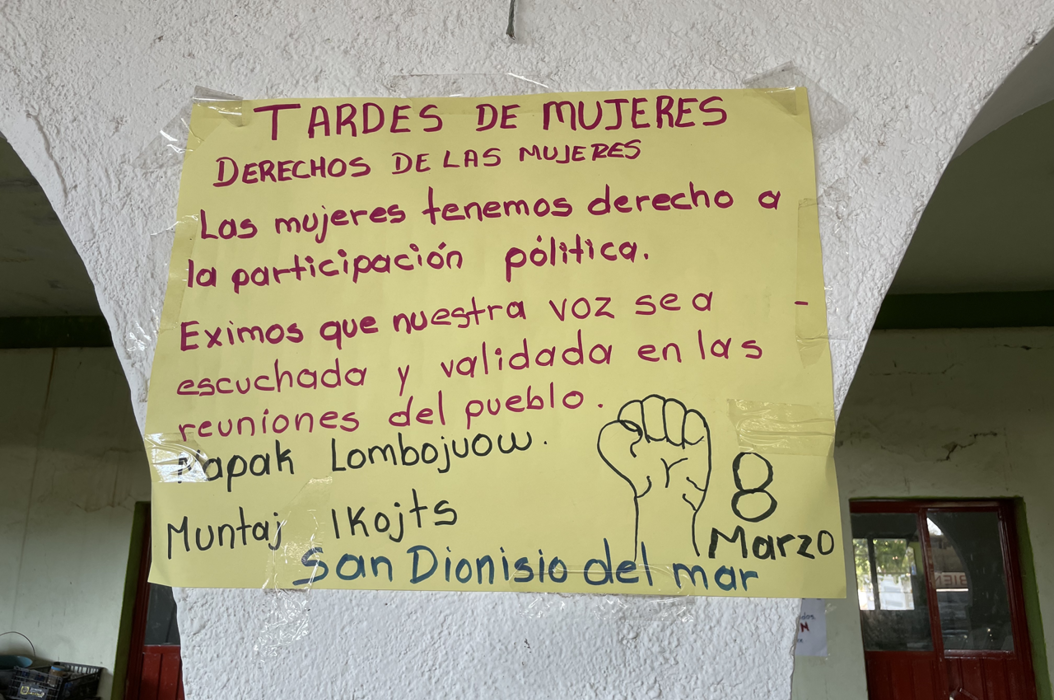 TARDES DE MUJERES
DERECHOS DE LAS MUJERES
Las mujeres tenemos derecho a
la participación pólitica.
Eximos que nuestra voz sea -
escuchada y validada en las
reuniones del pueblo.
Napak Lombojuow.
Muntaj Ikojts
8
Marzo
San Dionisio del mar